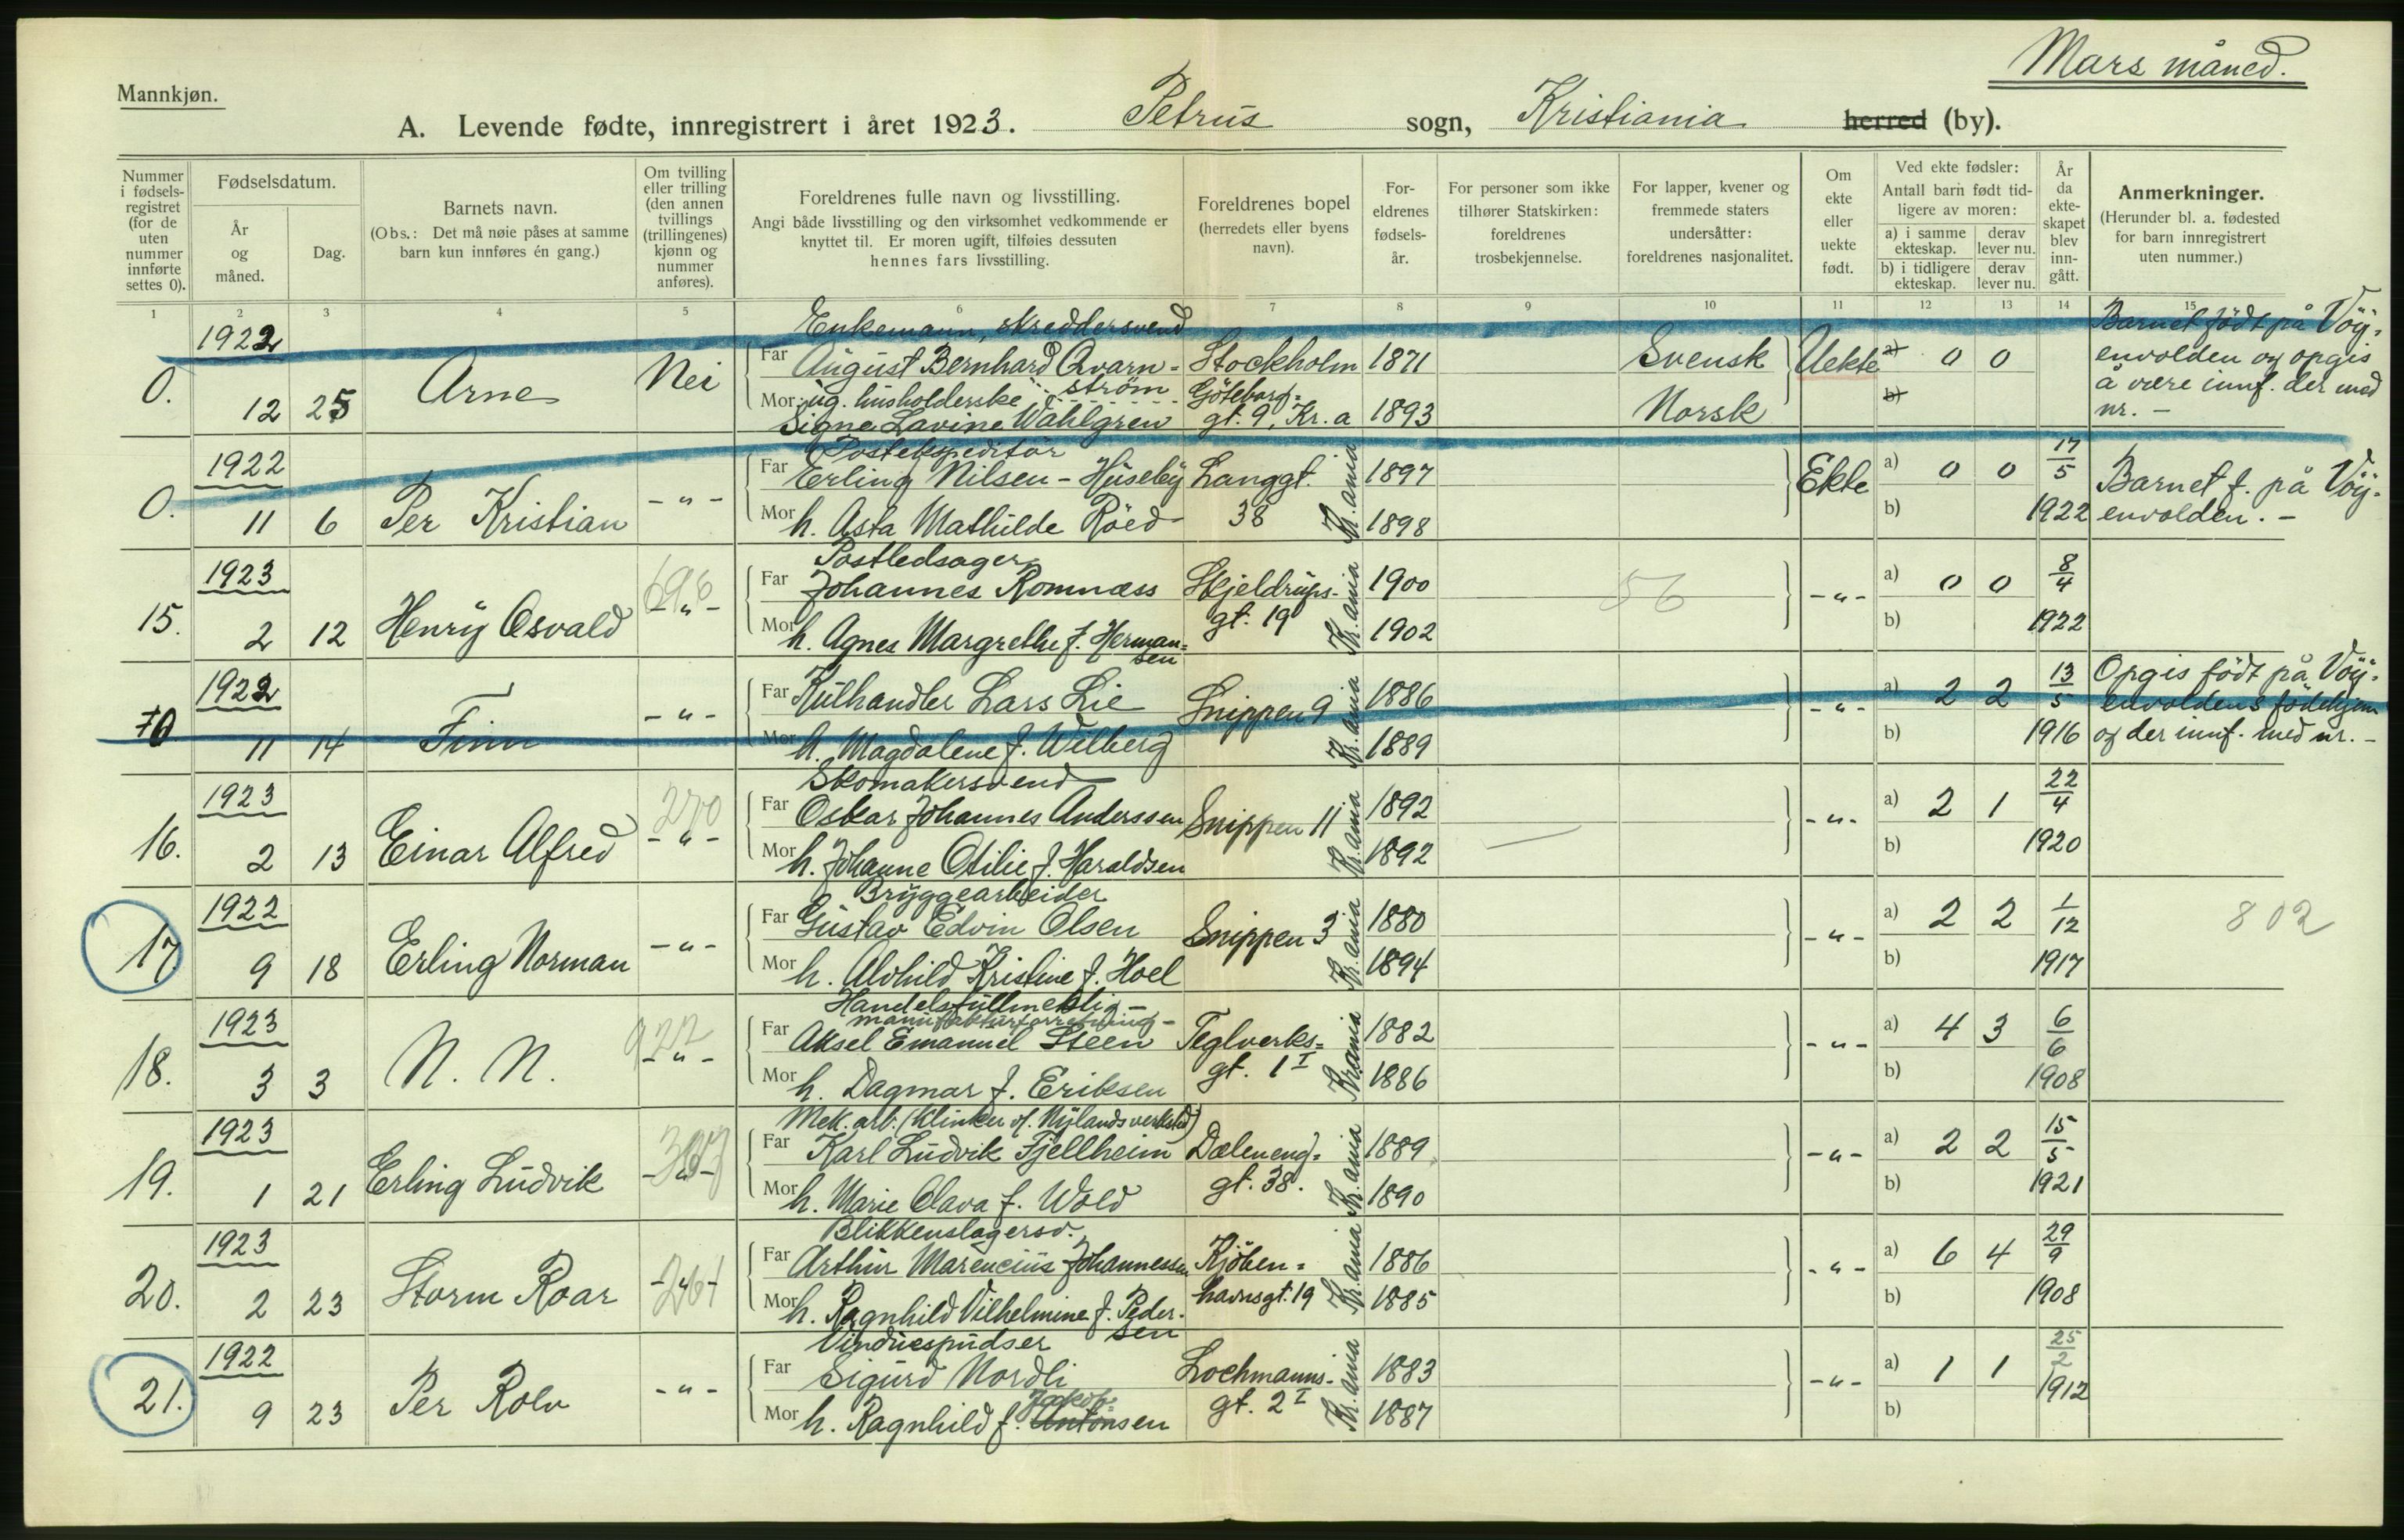 Mars måned.
Mannkjøn.
A. Levende fødte, innregistrert i året 1923. Petrus sogn, Kristiania herred (by).
Nummer i fødsels-registret (for de uten nummer innførte settes 0).
Fødselsdatum.
År og måned.
Dag.
Barnets navn.
(Obs.: Det må nøie påses at samme barn kun innføres én gang.)
Om tvilling eller trilling (den annen tvillings (trillingenes) kjønn og nummer anføres).
Foreldrenes fulle navn og livsstilling.
Angi både livsstilling og den virksomhet vedkommende er knyttet til. Er moren ugift, tilføies dessuten hennes fars livsstilling.
Foreldrenes bopel (herredets eller byens navn).
For-eldrenes fødsels-år.
For personer som ikke tilhører Statskirken: foreldrenes trosbekjennelse.
For lapper, kvener og fremmede staters undersåtter: foreldrenes nasjonalitet.
Om ekte eller uekte født.
Ved ekte fødsler:
Antall barn født tid-ligere av moren:
a) i samme ekteskap. derav lever nu.
b) i tidligere ekteskap. derav lever nu.
År da ekte-skapet blev inn-gått.
Anmerkninger.
(Herunder bl. a. fødested for barn innregistrert uten nummer.)
1 2 3 4 5 6 7 8 9 10 11 12 13 14 15
1922 Enkemann, skreddersvend Barnet født på Vöy-
Far August Bernhard Qvarn- Stockholm 1871 Svensk Uekte a) 0 0 envolden og opgis
0. 12 25 Arne Nei ström å være innf. der med
Mor ug. husholderske Göteborg- b)
Signe Lavine Wahlgren gt. 9, Kr.a 1893 Norsk nr. -
1922 Postekspeditör 17/5
Far Erling Nilsen-Huseby Langgt. 1897 Ekte a) 0 0 Barnet f. på Vöy-
0. 11 6 Per Kristian -"- Mor h. Asta Mathilde Röed 38 Kr.ania 1898 b) 1922 envolden. -
1923 Postledsager 696 8/4
Far Johannes Romnæss Hjeldrups- 1900 56 -"- a) 0 0
15. 2 12 Henry Osvald -"- Mor h. Agnes Margrethe f. Herman- gt. 19 Kr.ania 1902 b) 1922
sen
1922 Far Kulhandler Lars Lie Snippen 9 1886 -"- a) 2 2 13/5 Opgis födt på Vöy-
envoldens födehjem
0 11 14 Finn -"- Mor h. Magdalene f. Wilberg Kr.ania 1889 b) 1916 og der innf. med nr. -
1923 Skomakersvend 270 22/4
Far Oskar Johannes Anderssen Snippen 11 1892 -"- a) 2 1
16. 2 13 Einar Alfred -"- Mor h. Johanne Otilie f. Haraldsen Kr.ania 1892 b) 1920
1922 Bryggearbeider 1/12
Far Gustav Edvin Olsen Snippen 3 1880 -"- a) 2 2 802
17. 9 18 Erling Norman -"- Mor h. Alvhild Kristine f. Hoel Kr.ania 1894 b) 1917
1923 Handelsfullmektig -
manufakturforretning - 922 6/6
Far Aksel Emanuel Steen Teglverks- 1882 -"- a) 4 3
18. 3 3 N. N. -"- Mor h. Dagmar f. Eriksen gt. 1 I Kr.ania 1886 b) 1908
1923 Mek. arb. (klinker v/. Nylands verksted) 15/5
Far Karl Ludvik Fjellheim Dæleneng- 1889 -"- a) 2 2
19. 1 21 Erling Ludvik -"- Mor h. Marie Olava f. Wold gt. 38. Kr.ania 1890 b) 1921
1923 Blikkenslagersv. 29/9
Far Arthur Marencius Johannessen Kjöben- 1886 -"- a) 6 4
20. 2 23 Storm Roar -"- 261 Mor h. Ragnhild Vilhelmine f. Peder- havnsgt. 19 Kr.ania 1885 b) 1908
sen
1922 Vinduespudser 25/2
Far Sigurd Nordli Lochmanns- 1883 -"- a) 1 1 1912
21. 9 23 Per Rolv -"- Jakob-
Mor h. Ragnhild f. Antonsen gt. 2 I Kr.ania 1887 b)